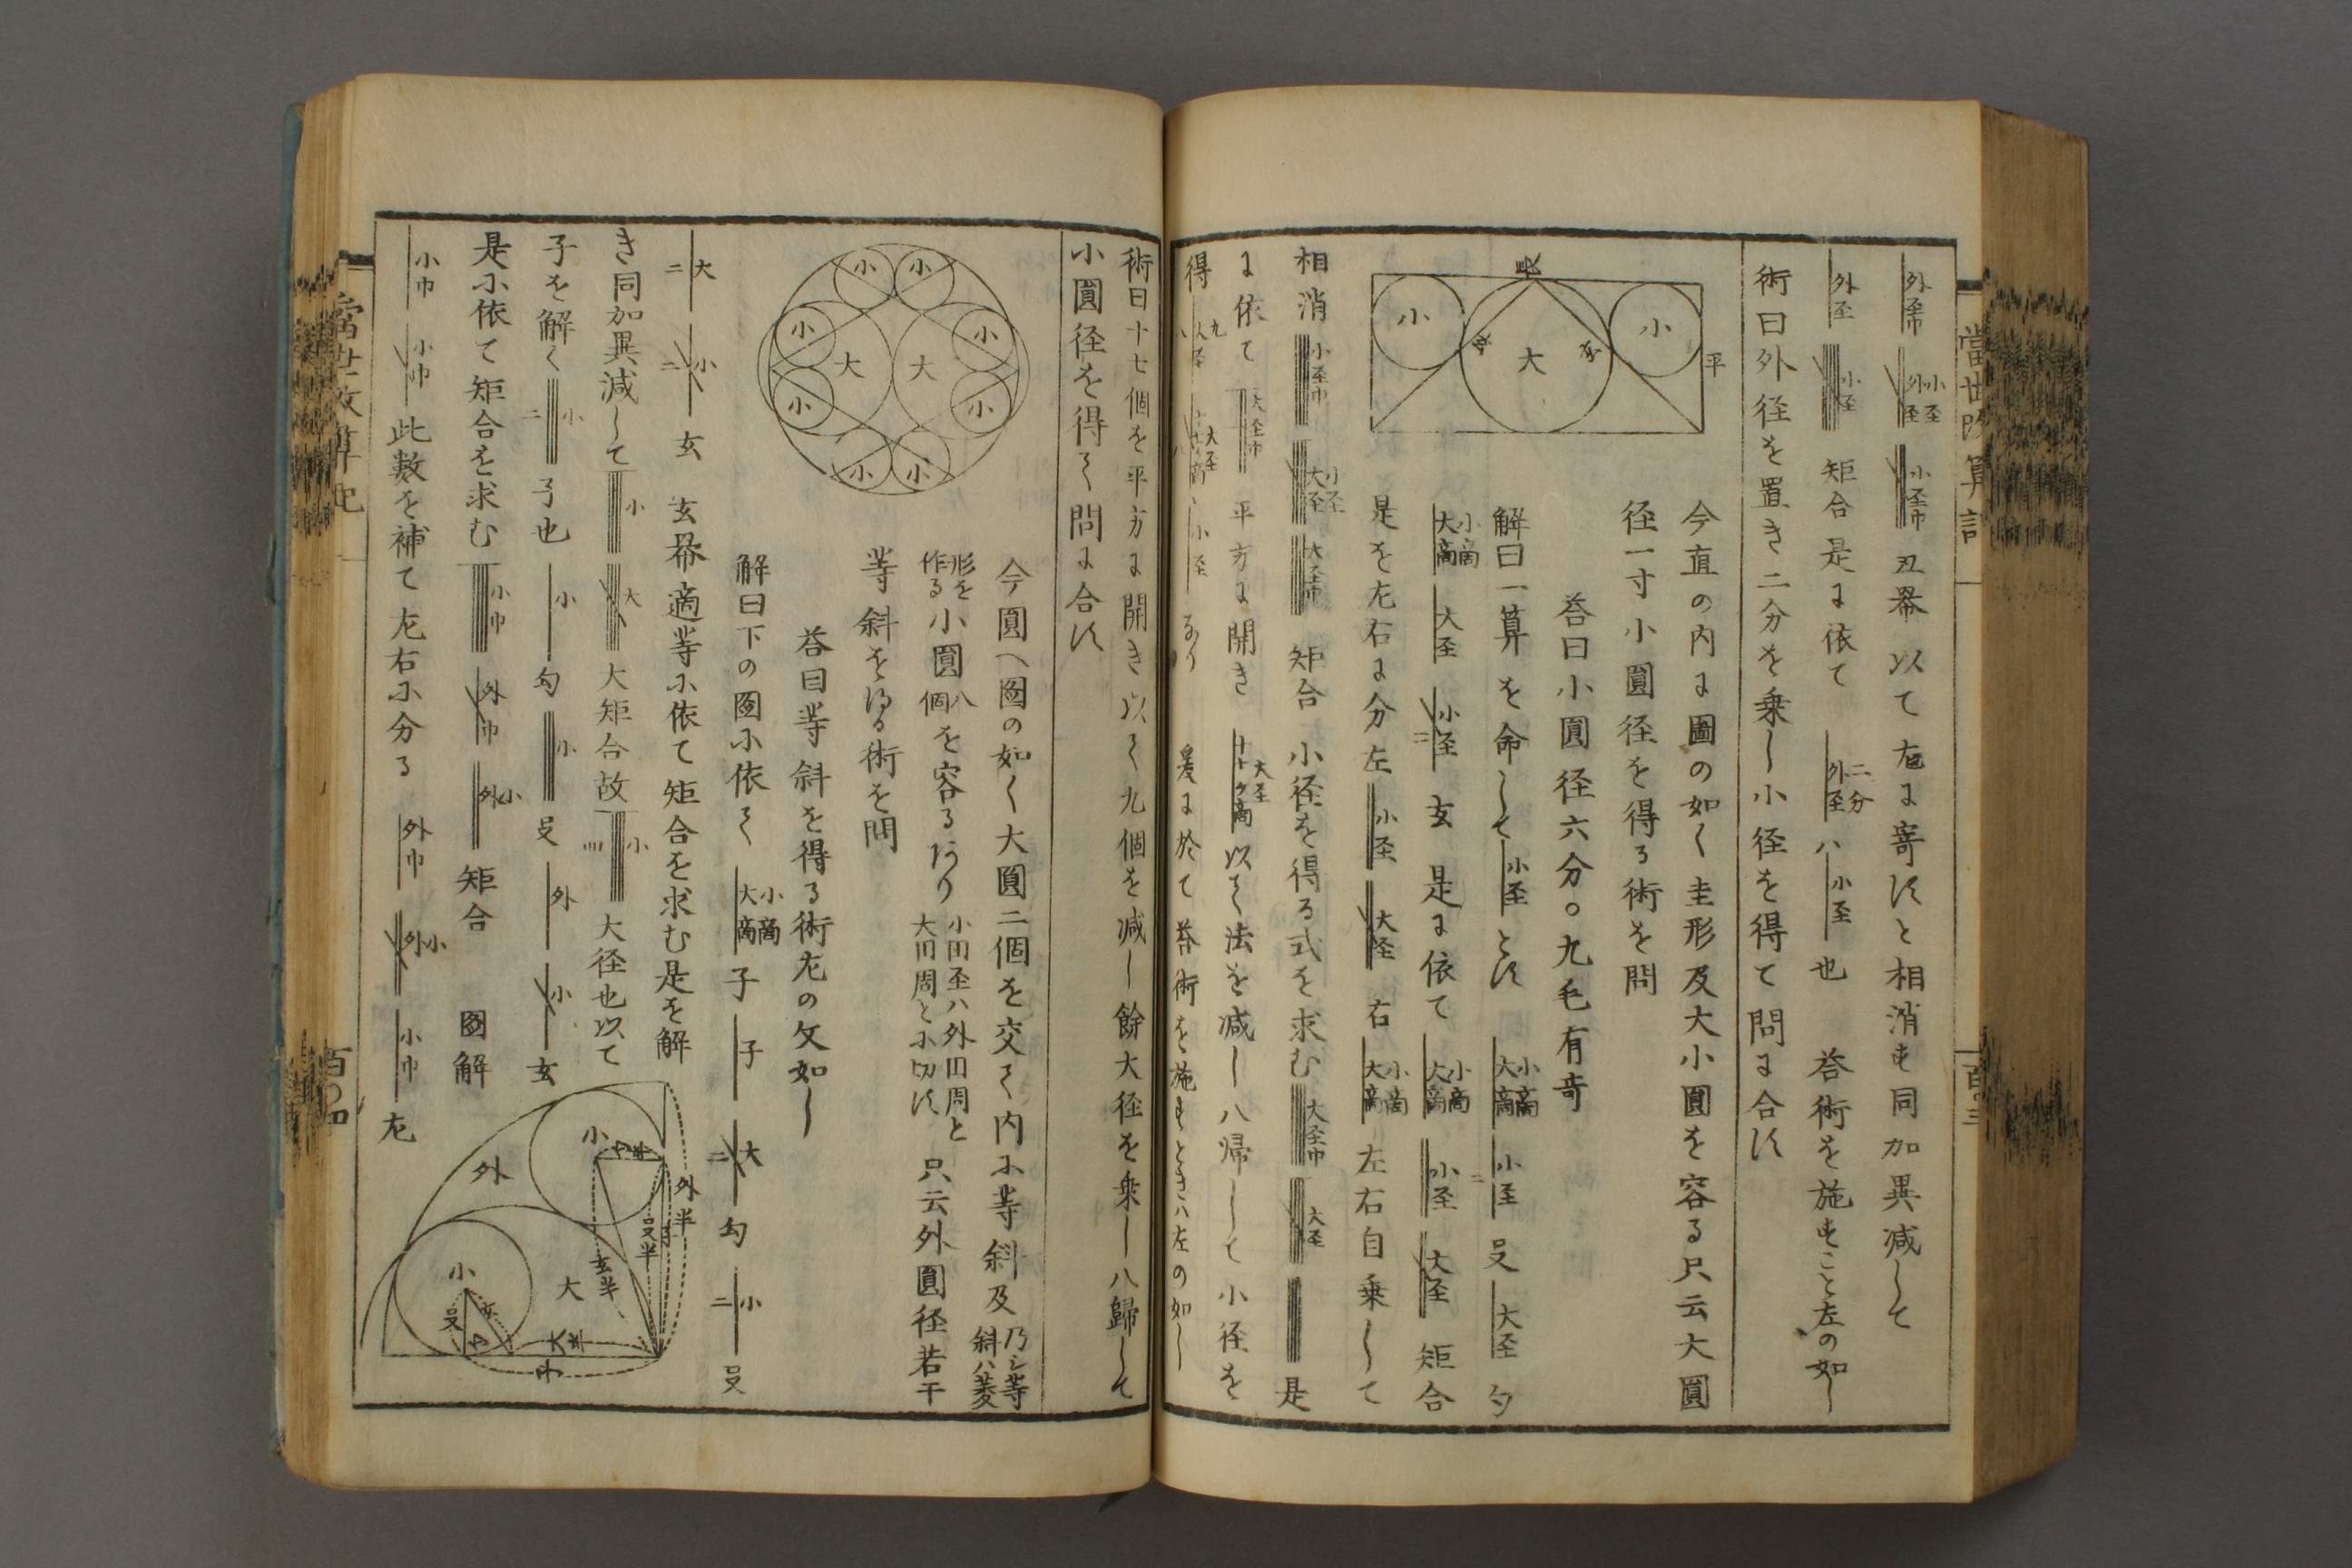 外径巾 小径外径 小径巾 丑冪以て左に寄すと相消も同加異減して
外径 小径 矩合是に依て 二分外径ハ小径也 荅術を施すこと左の如し
術曰外径を置き二分を乗し小径を得て問に合す
小 大 小 平
今直の内に圖の如く圭形及大小圓を容る只云大圓
径一寸小圓径を得る術を問
荅曰小圓径六分。九毛有奇
解曰一算を命して小径とす 小商大商 小径 㕛 大径 勾
小商大商 大径 小径 玄 是に依て 小商大商 小径 大径 矩合
是を左右に分左 小径 大径 右 小商大商 左右自乗して
相消 小径巾 小径大径 大径巾 矩合 小径を得る式を求む 大径巾 大径 是
に依て 大径巾 平方に開き 大径十七ケ商 以て法を減し八帰して小径を
得 九大径 大径 小径 なり 爰に於て荅術を施すときハ左の如し
當世改算記
百〇三
術曰十七個を平方に開き以て九個を減し餘大径を乗し八歸して
小圓径を得て問に合す
小 小 小 小 大 大 小 小 小 小
今圓へ圖の如く大圓二個を交て内に等斜及 乃シ等斜ハ菱
形を作る 小圓八個を容るあり 小円径ハ外円周と大円周とに切す 只云外圓径若干
等斜を得る術を問
荅曰等斜を得る術左の文如し
解曰下の圖に依て 小商大商 子 子 大二 勾 小二 㕛
大二 小二 玄 玄冪適等に依て矩合を求む是を解
き同加異減して 小 大 大矩合故 小 大径也以て
子を解く 小二 子也 小 勾 小 㕛 外 小 玄
是に依て矩合を求む 小巾 外巾 外小 矩合 圖解
小巾 小巾 此數を補て左右に分る 外巾 外小 小巾 左
小 外 外半 㕛半 子 玄半 大 小 㕛 玄 勾 大半
當世改算記
百〇四